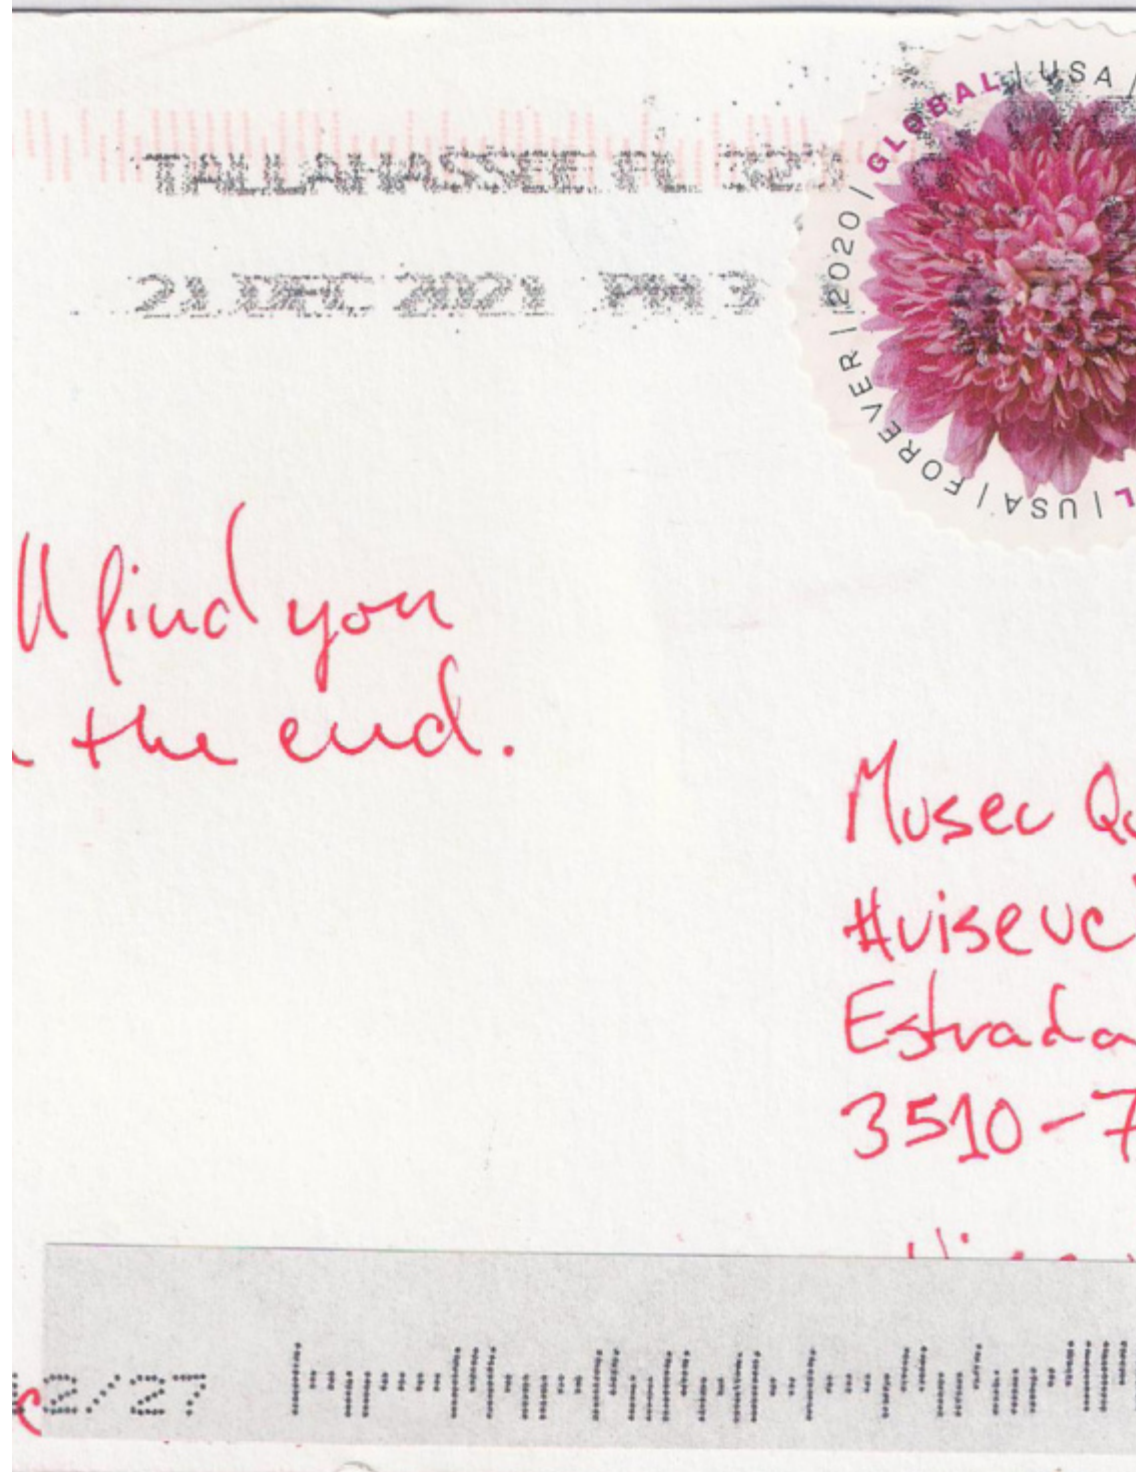 TALLAHASSEE FL 323
21 DEC 2021 PM 3
GLOBAL | USA |
FOREVER | 2020 /
L | USA |
ll find you
the end.
Museu
Estrada
3510-7
2/27